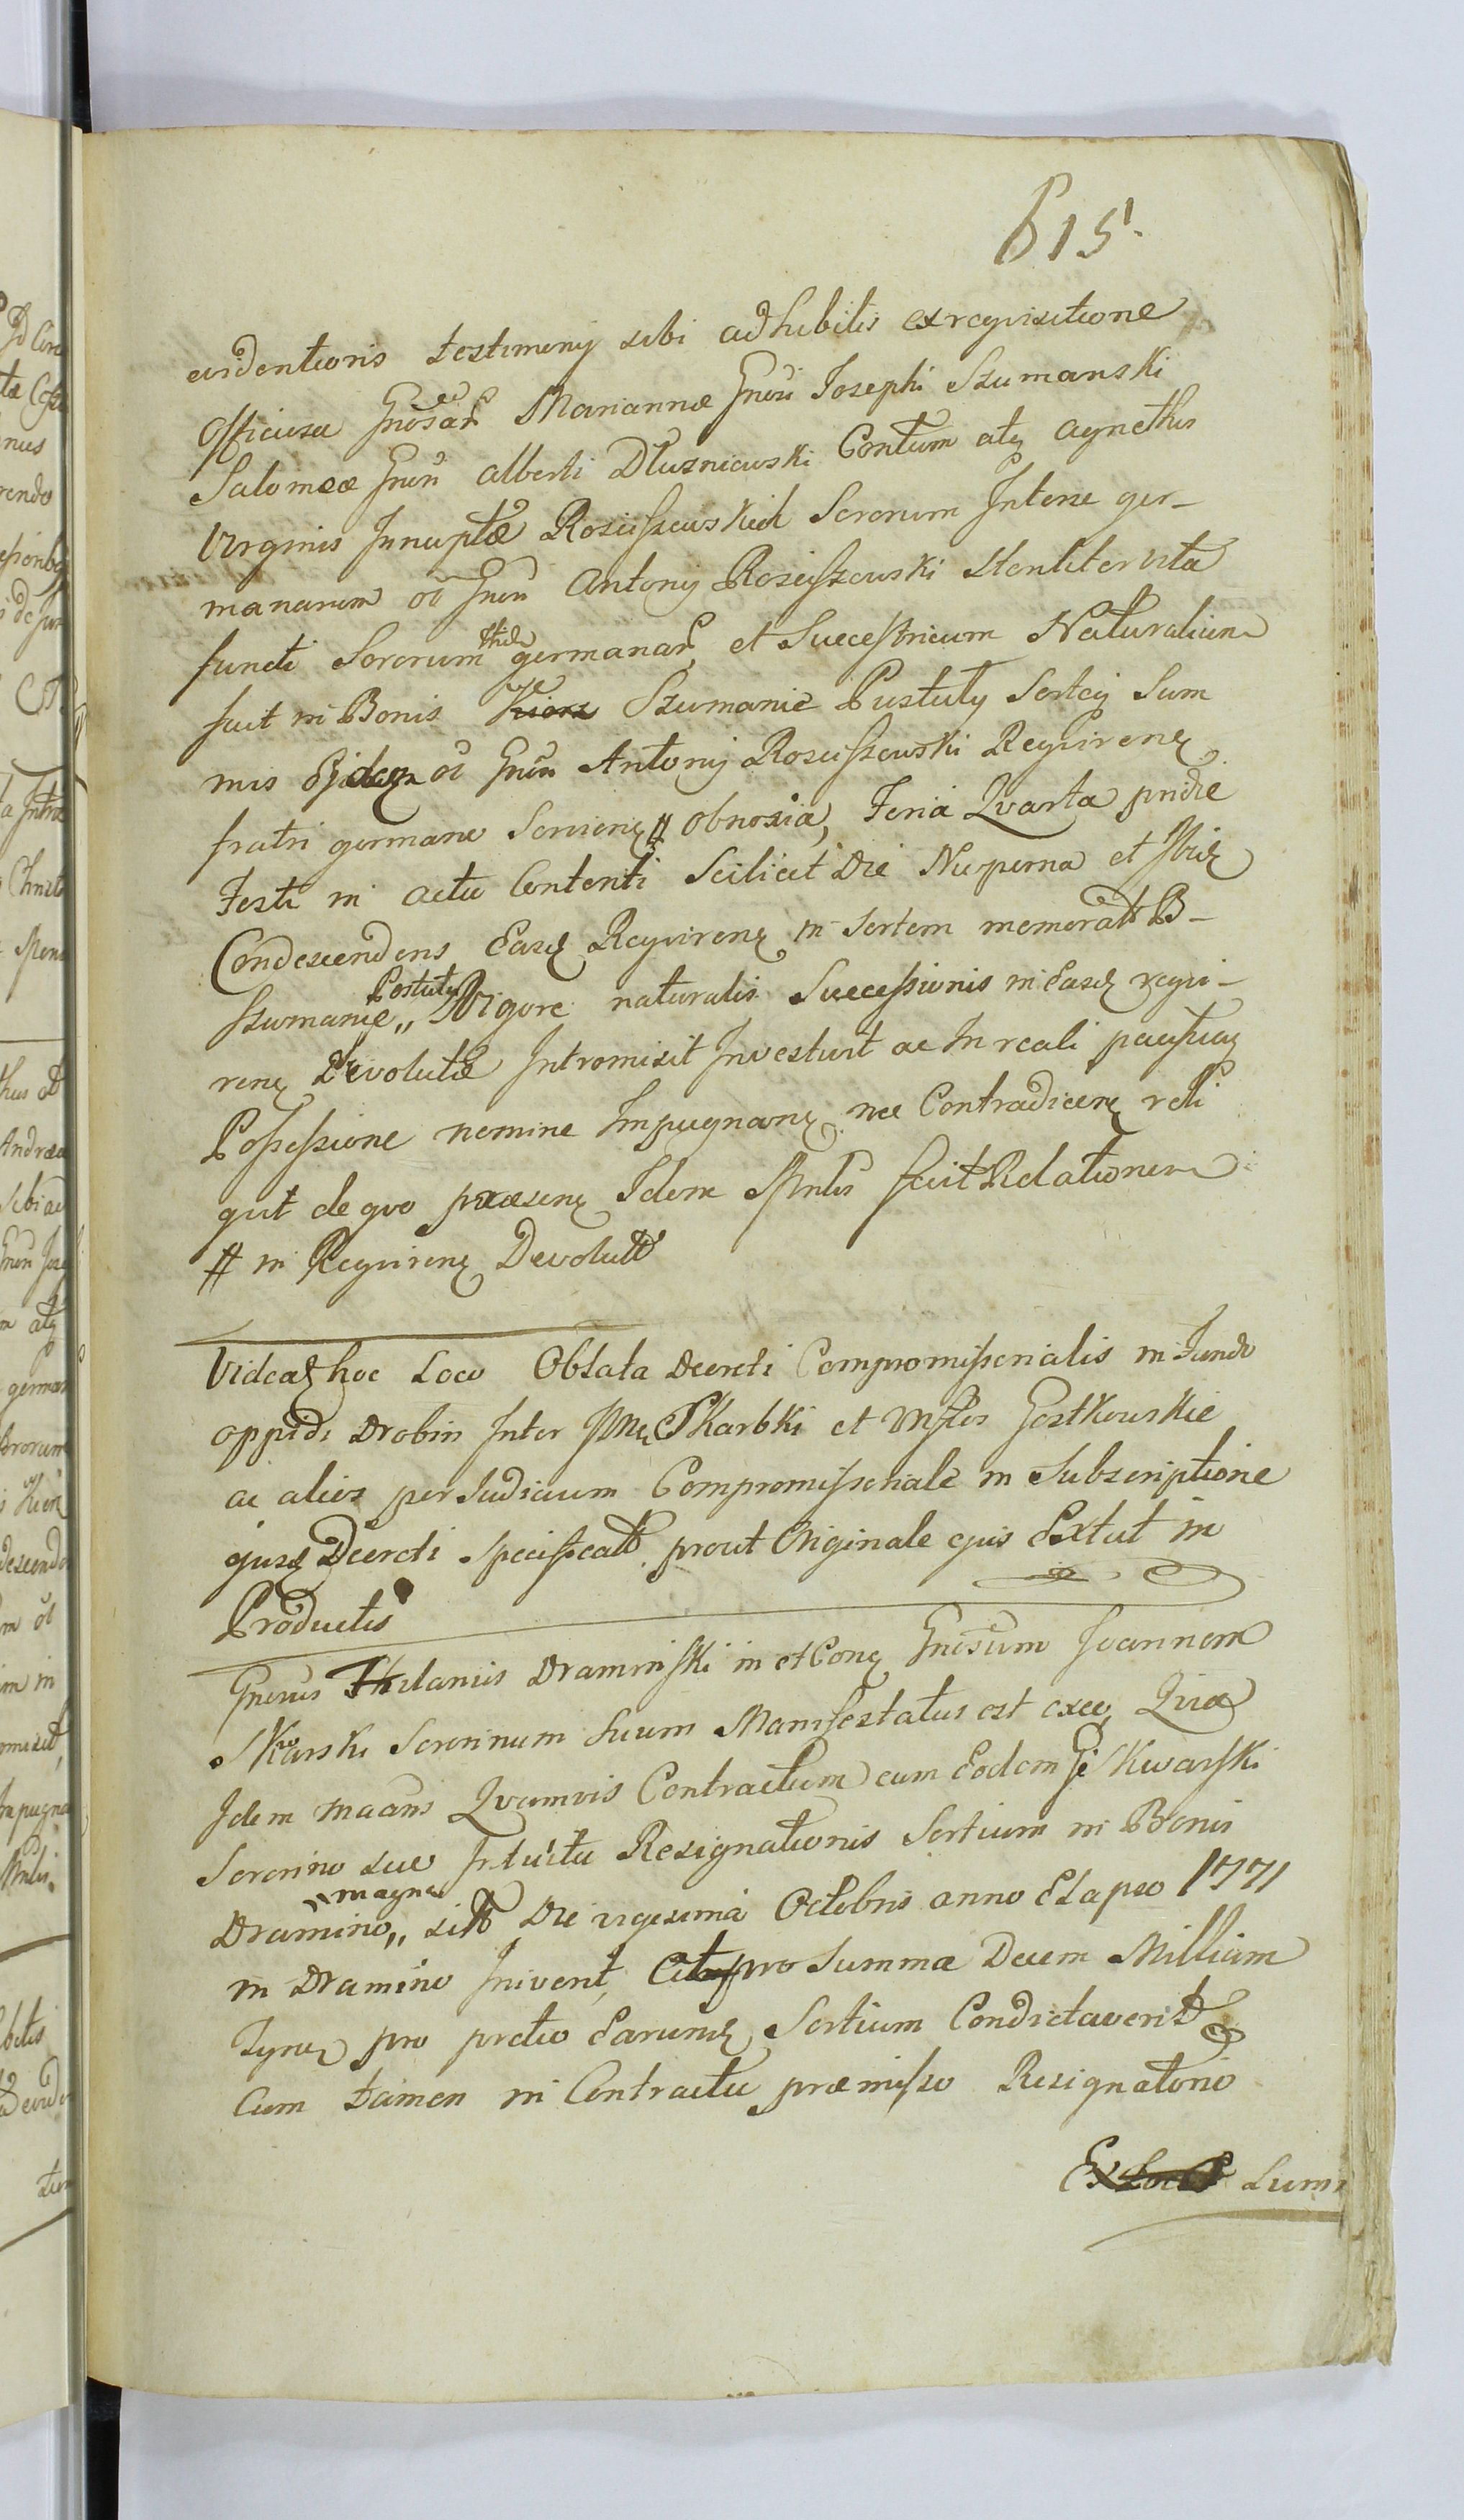 615.
evidentioris testimonij sibi adhibitis ex requisitione
Officiosa Gnosar Mariannæ Gnosi Josephi Szumanski
Salomeæ Gnosi Alberti Dłuzniewski Contum atq Agnethis
Virginis Innuptæ Rosciszewskich Sororum Intene ger-
manarum oi Gnosi Antonij Rosciszewski steriliter vita
functi Sororum thide germanar et Successricum Naturalium
fuit in Bonis Kiera Szumanie Pustuły Sortcij Sum
mis ejdem oi Gnosi Antonij Rosciszewski Requirenę
fratri germane Servienę # obnoxia, Feria Qvarta pridie
Festi in actu Contenti Scilicet Die Nuperna et Ibidę
Condescendens Easdę Requirenę in Sortem memoratt B-
Szumanie,, Pustuły Vigore naturalis Successionis in Easdę requi-
renę Devolutæ Intromisit Investivit ac In reali pacificaq
Possessione nemine Impugnanę nec Contradicenę reli
quit de quo præsenę Idem Mntlis fecit Relationem
# in Requirenę Devolutt
Videatę hoc Loco Oblata Decreti Compromissorialis in Fundo
oppidi Drobin Inter Skarbki et Gostkowskie
ac alios per Judicium Compromissoriale in Subscriptione
ejusdę Decreti Specificatt prout Originale ejus Extat in
Productis
Gnosus Draminski in et Conę Gnosum Joannem
Skwarski Sororinum Suum Manifestatus est exee, Quia
Idem maans Qvamvis Contractum cum Eodem Ge Skwarski
Sororino suo Intuitu Resignationis Sortium in Bonis
Dramino,, magna sitt Die vigesima Octobris anno Elapso 1771
in Dramino Inivent, pro Summa Decem Millium
Fynę pro pretio Earumdę Sortium Condictaverit
Cum tamen in Contractu præmisso Resignatorio
Sum